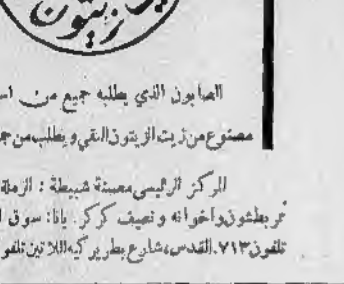 زيتون
الصابون الذي يطلبه جميع من
مصنوع من زيت الزيتون النقي ويطلب من
المركز الرئيسي مصبنة شبيطة : الرملة
واخوانه ونصيف كركر. يافا: سوق
تلفون ٧١٣، القدس، شارع بطريركية اللاتين تلفو